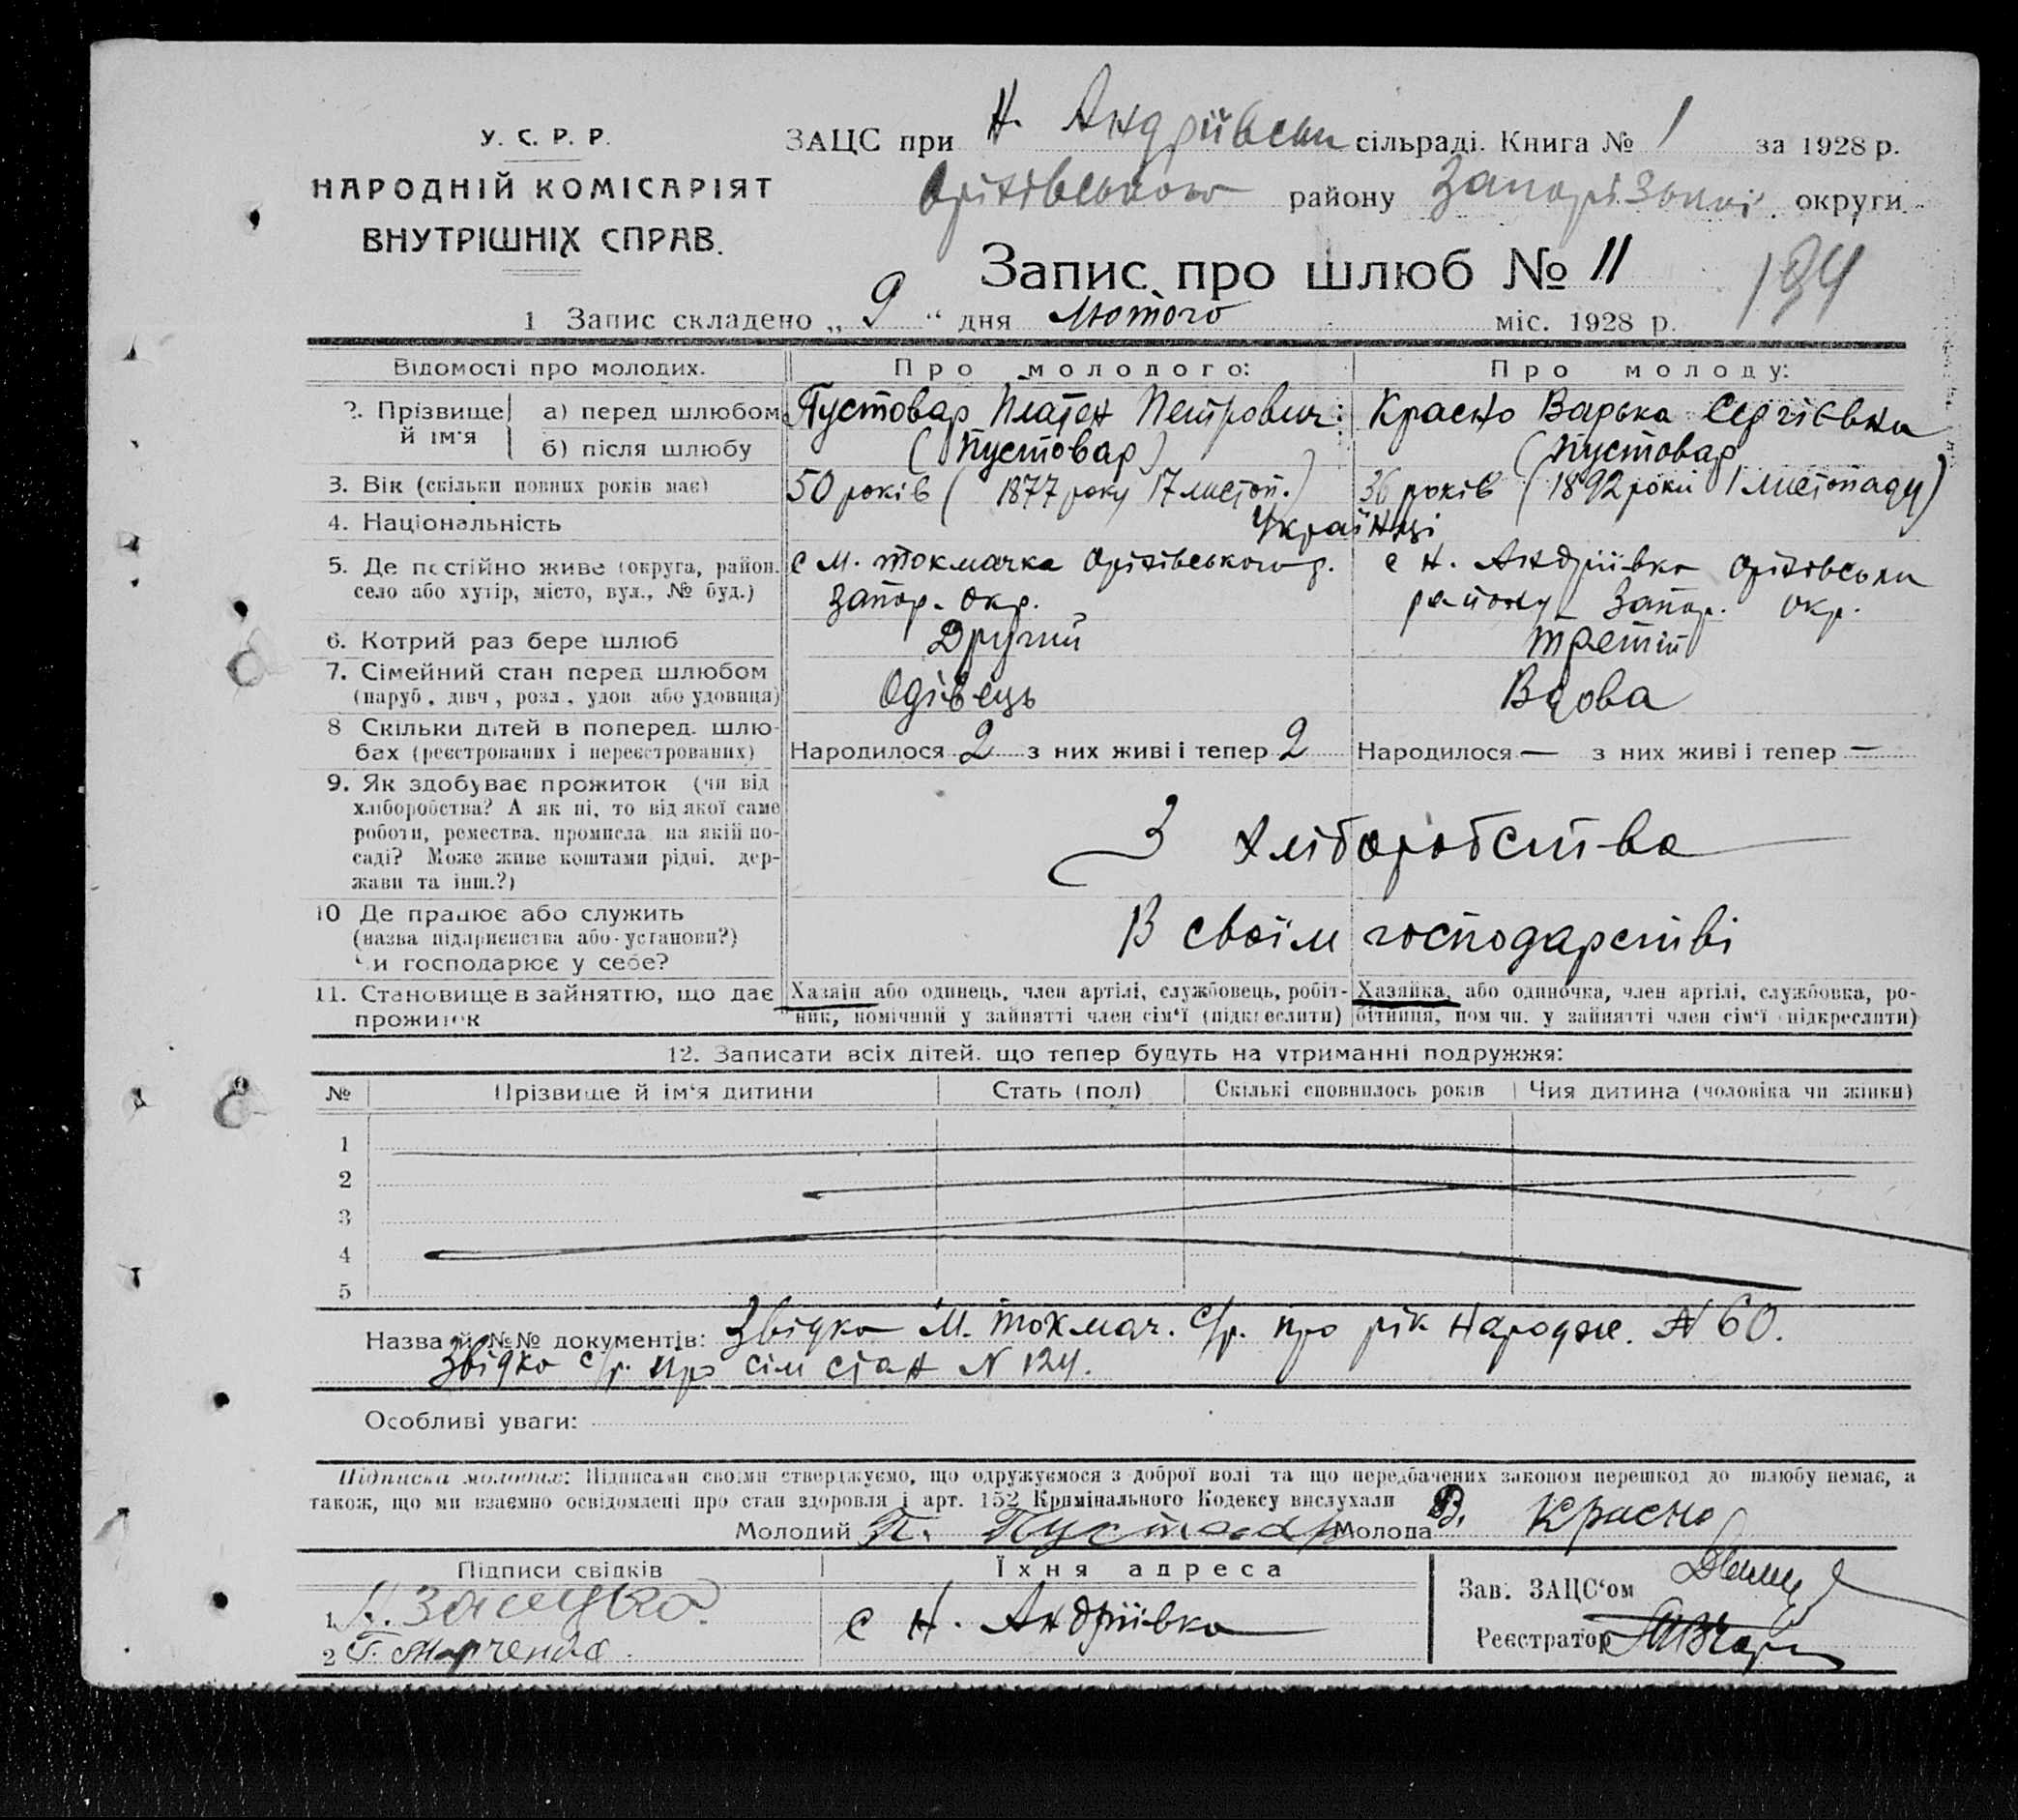 У. С. Р. Р.
НАРОДНІЙ КОМІСАРІЯТ
ВНУТРІШНІХ СПРАВ.
ЗАЦС при Н. Андріївськи сільраді. Книга № 1 за 1928 р.
Оріхівського району Запорізької округи
Запис про шлюб № 11
194
1 Запис складено „ 9 “ дня Лютого міс. 1928 р.
Відомості про молодих.
Про молодого:
Про молоду:
2. Прізвище й ім'я
а) перед шлюбом
б) після шлюбу
Пустовар Платон Петрович
(Пустовар)
Красно Варька Сергієвна
(Пустовар
3. Вік (скільки повних років має)
50 років ( 1877 року 17 листоп.)
36 років (1892 роки 1 листопаду)
4. Національність
Українці
5. Де постійно живе (округа, район.
село або хутір, місто, вул., № буд.)
с М. Токмачка Оріхівського р.
Запор. окр.
с Н. Андріївка Оріхівськи
району Запор. окр.
6. Котрий раз бере шлюб
Другий
третій
7. Сімейний стан перед шлюбом
(паруб, дівч, розл, удов або удовиця)
Одівець
Вдова
8 Скільки дітей в поперед. шлю-
бах (реєстрованих і нереєстрованих)
Народилося 2 з них живі і тепер 2
Народилося — з них живі і тепер —
9. Як здобуває прожиток (чи від
хліборобства? А як ні, то від якої саме
роботи, ремества, промисла на якій по-
саді? Може живе коштами рідні, дер-
жави та інш.?)
З хліборобства
10 Де працює або служить
(назва підприєнства або установи?)
Чи господарює у себе?
В своїм господарстві
11. Становище в зайняттю, що дає
прожиток
Хазяїн або одинець, член артілі, службовець, робіт-
ник, помічний у зайнятті член сім'ї (підкреслити)
Хазяйка, або одиночка, член артілі, службовка, ро-
бітниця, помічн. у зайнятті член сім'ї підкреслити)
12. Записати всіх дітей, що тепер будуть на утриманні подружжя:
№ Прізвище й ім'я дитини Стать (пол) Скількі сповнилось років Чия дитина (чоловіка чи жінки)
1
2
3
4
5
Назва й №№ документів: Звідка М. Токмач. С/р. про рік Народже. № 60.
Звідка с/р. про сім стан N 124.
Особливі уваги:
Підписка молодих: Підписами своїми стверджуємо, що одружуємося з доброї волі та що передбачених законом перешкод до шлюбу немає, а
також, що ми взаємно освідомлені про стан здоровля і арт. 152 Кримінального Кодексу вислухали
Молодий П. Пустовар Молода В. Красно
Підписи свідків
Їхня адреса
1
2 Г. Марченко
с Н. Андріївка
Зав. ЗАЦС'ом
Реєстратор